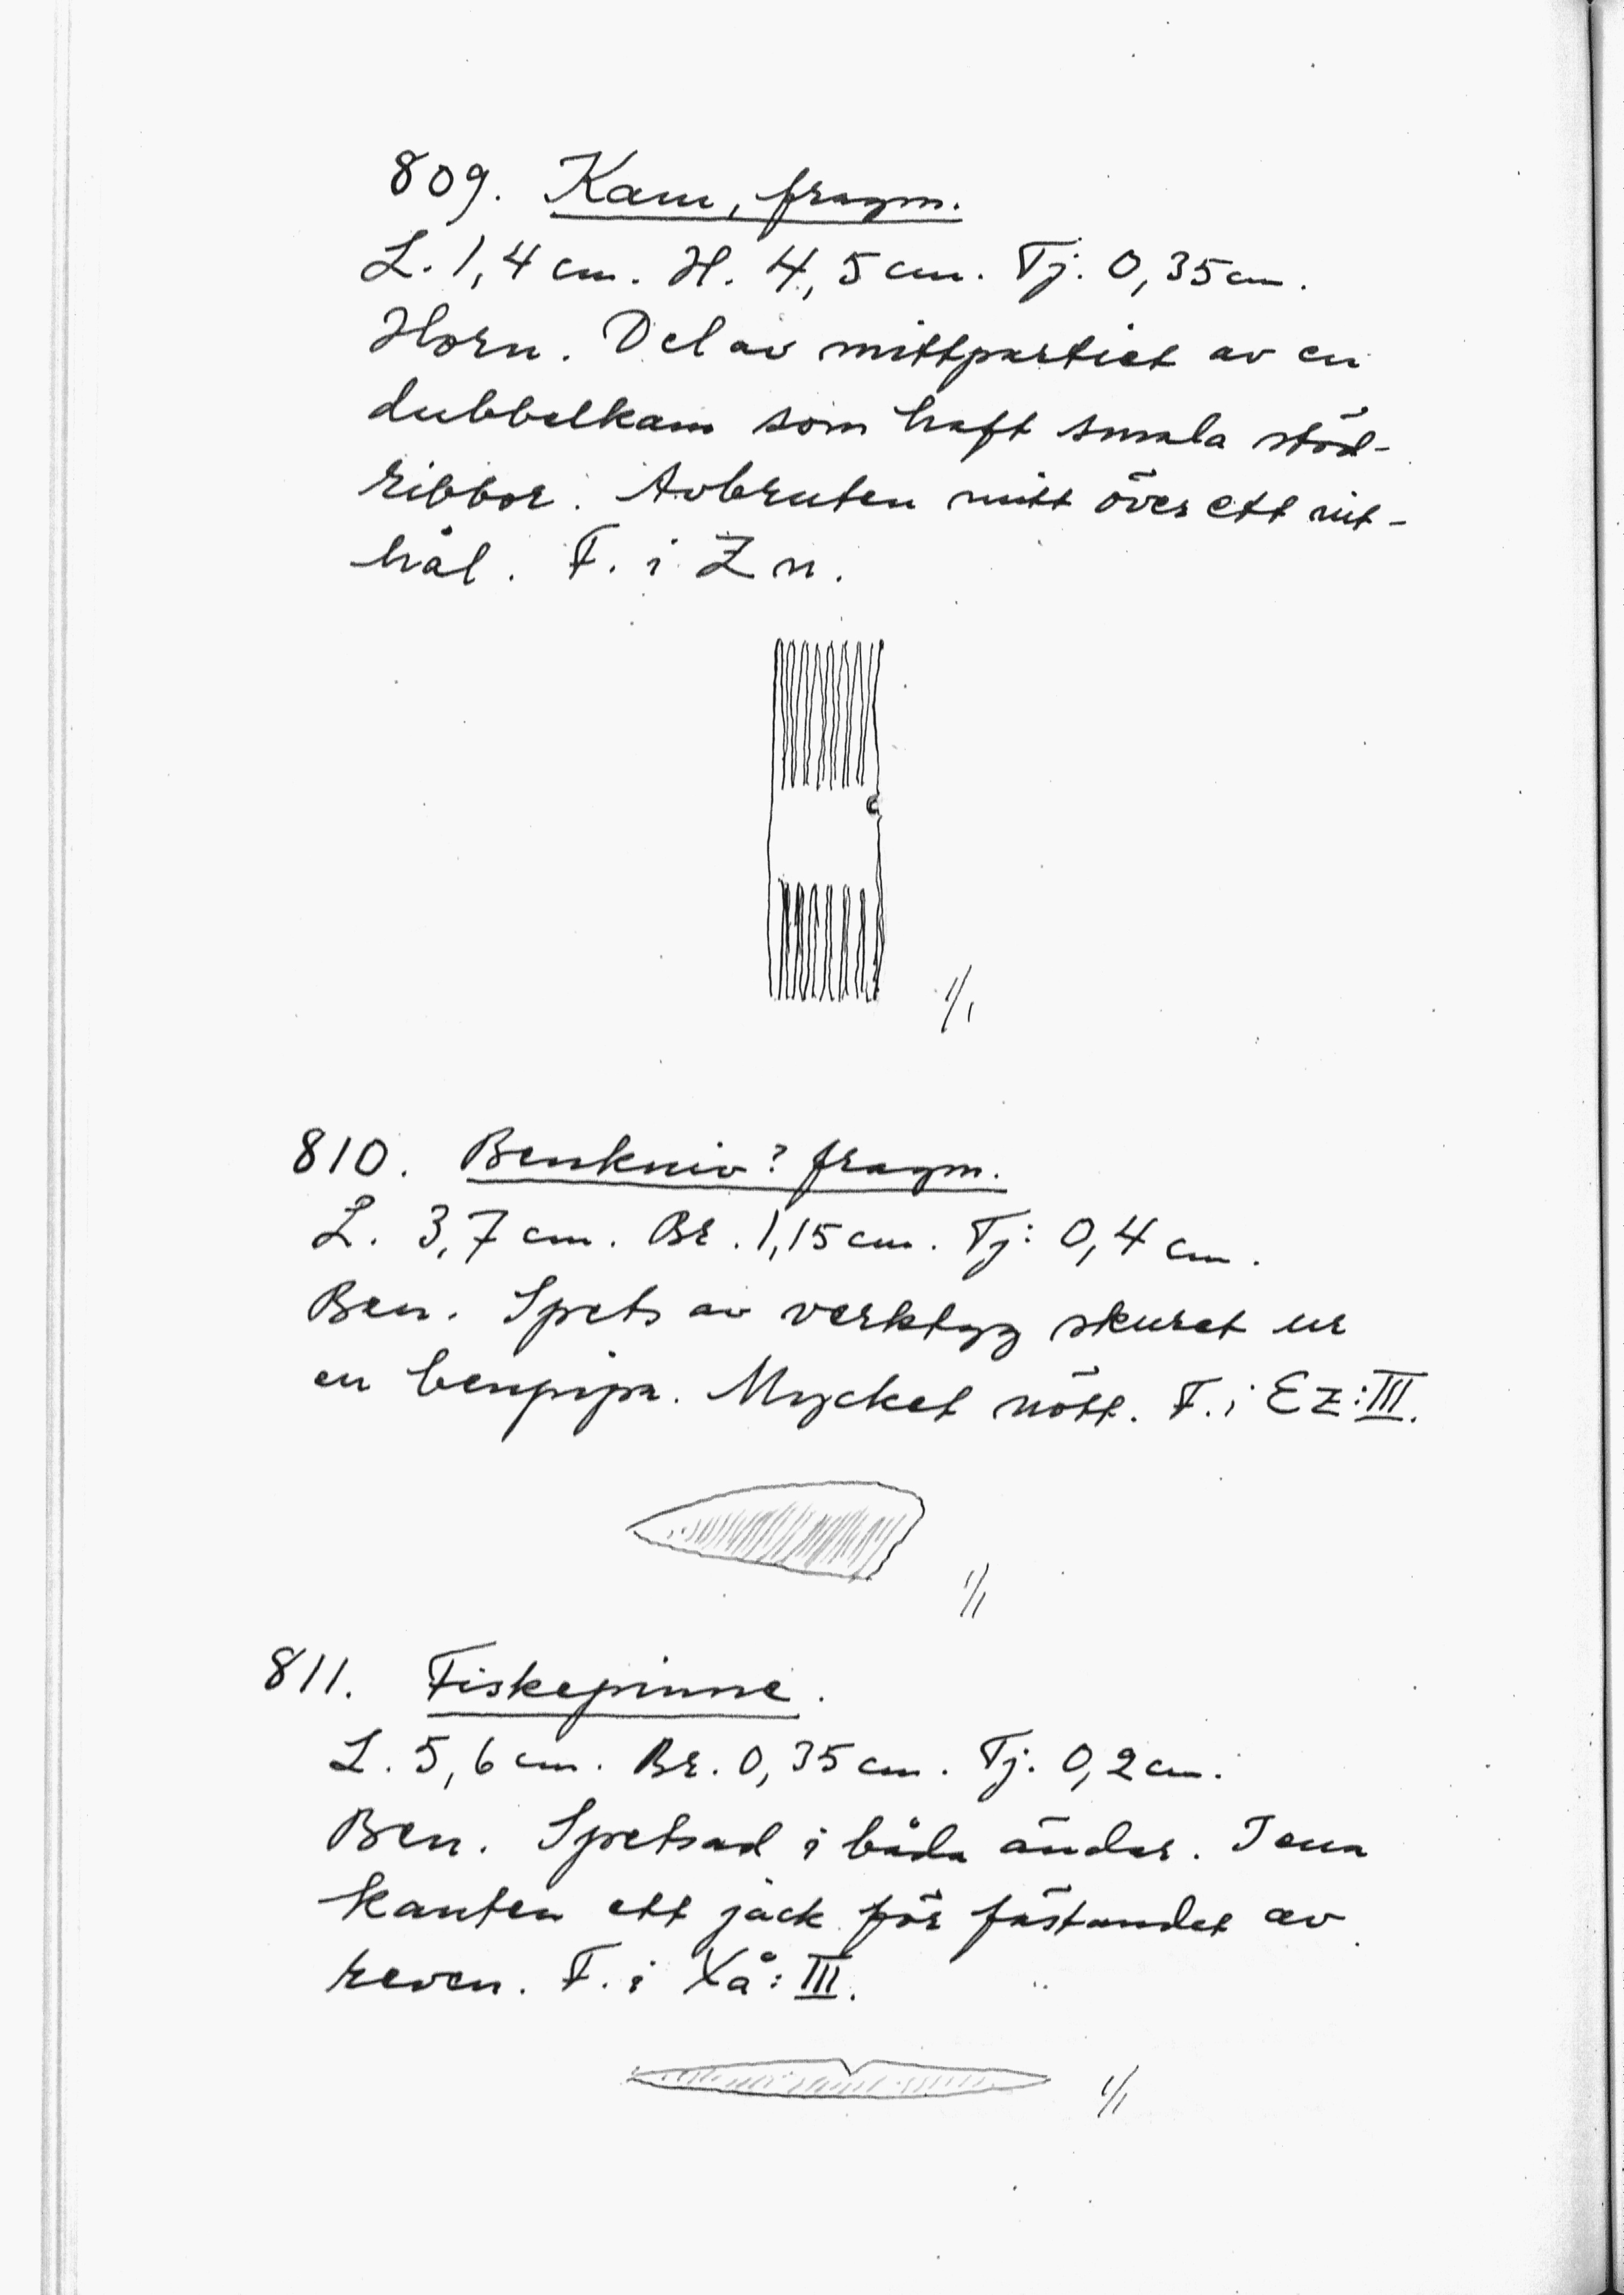 809. Kam, fragm.
L. 1,4 cm. H. 4,5 cm. Tj. 0,35 cm.
Horn. Del av mittpartiet av en
dubbelkam som haft smala stöd-
ribbor. Avbruten mitt över ett nit-
hål. F. i Zn.
1/1
810. Benkniv? fragm.
L. 3,7 cm. Br. 1,15 cm. Tj: 0,4 cm.
Ben. Spets av verktyg skuret ur
en benpipa. Mycket nött. F. i Ez:III.
1/1
811. Fiskepinne.
L. 5,6 cm. Br. 0,35 cm. Tj. 0,2 cm.
Ben. Spetsad i båda ändar. I ena
kanten ett jack för fästandet av
reven. F. i Xå:III.
1/1